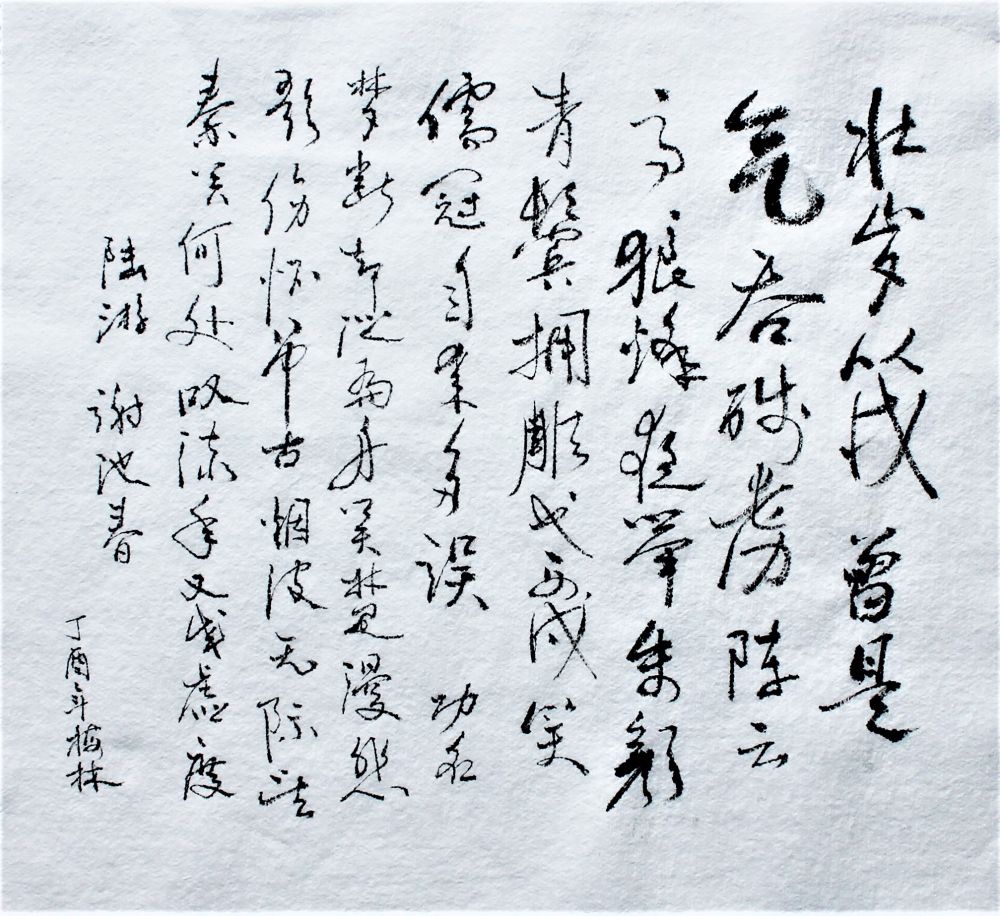 壮岁从戎曾是
气吞残虏阵云
高狼烽夜举朱颜
青鬓拥雕戈西戍笑
儒冠自来多误 功名
梦断却泛扁舟吴楚漫悲
歌伤怀吊古烟波无际望
秦关何处叹流年又成虚度
陆游 谢池春
丁酉年梅林